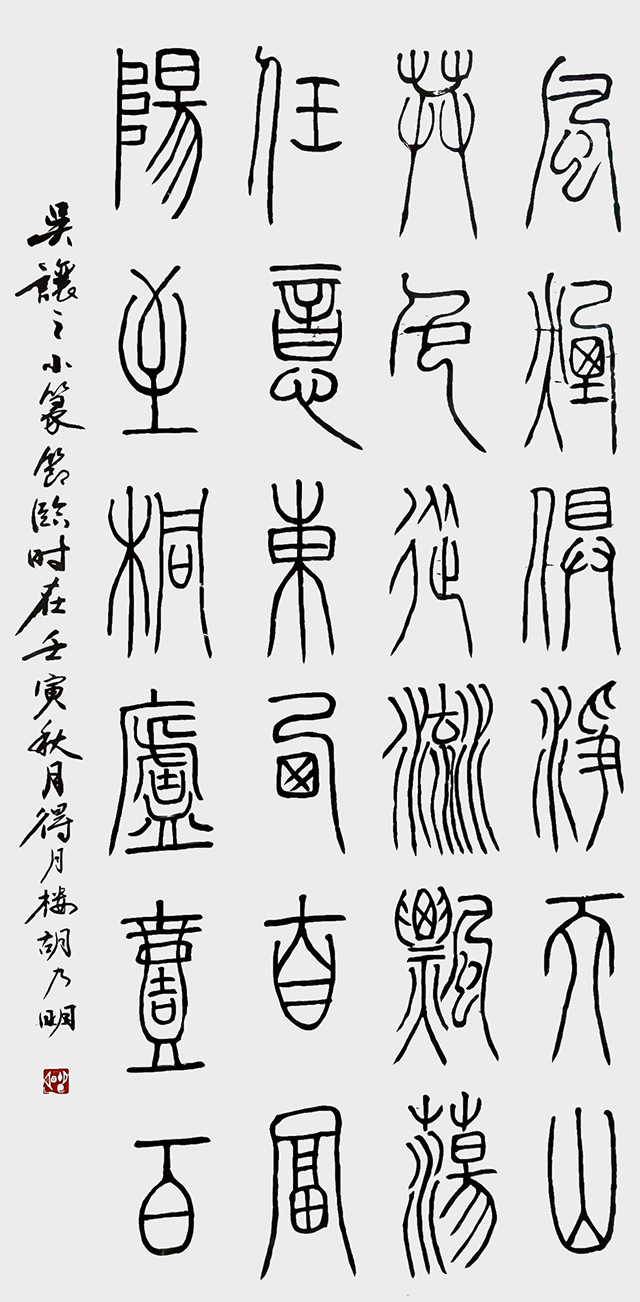 風煙俱淨天山
共色從流飄蕩
任意東西自富
陽至桐廬壹百
吳讓之小篆節臨时在壬寅秋月得月楼胡乃明